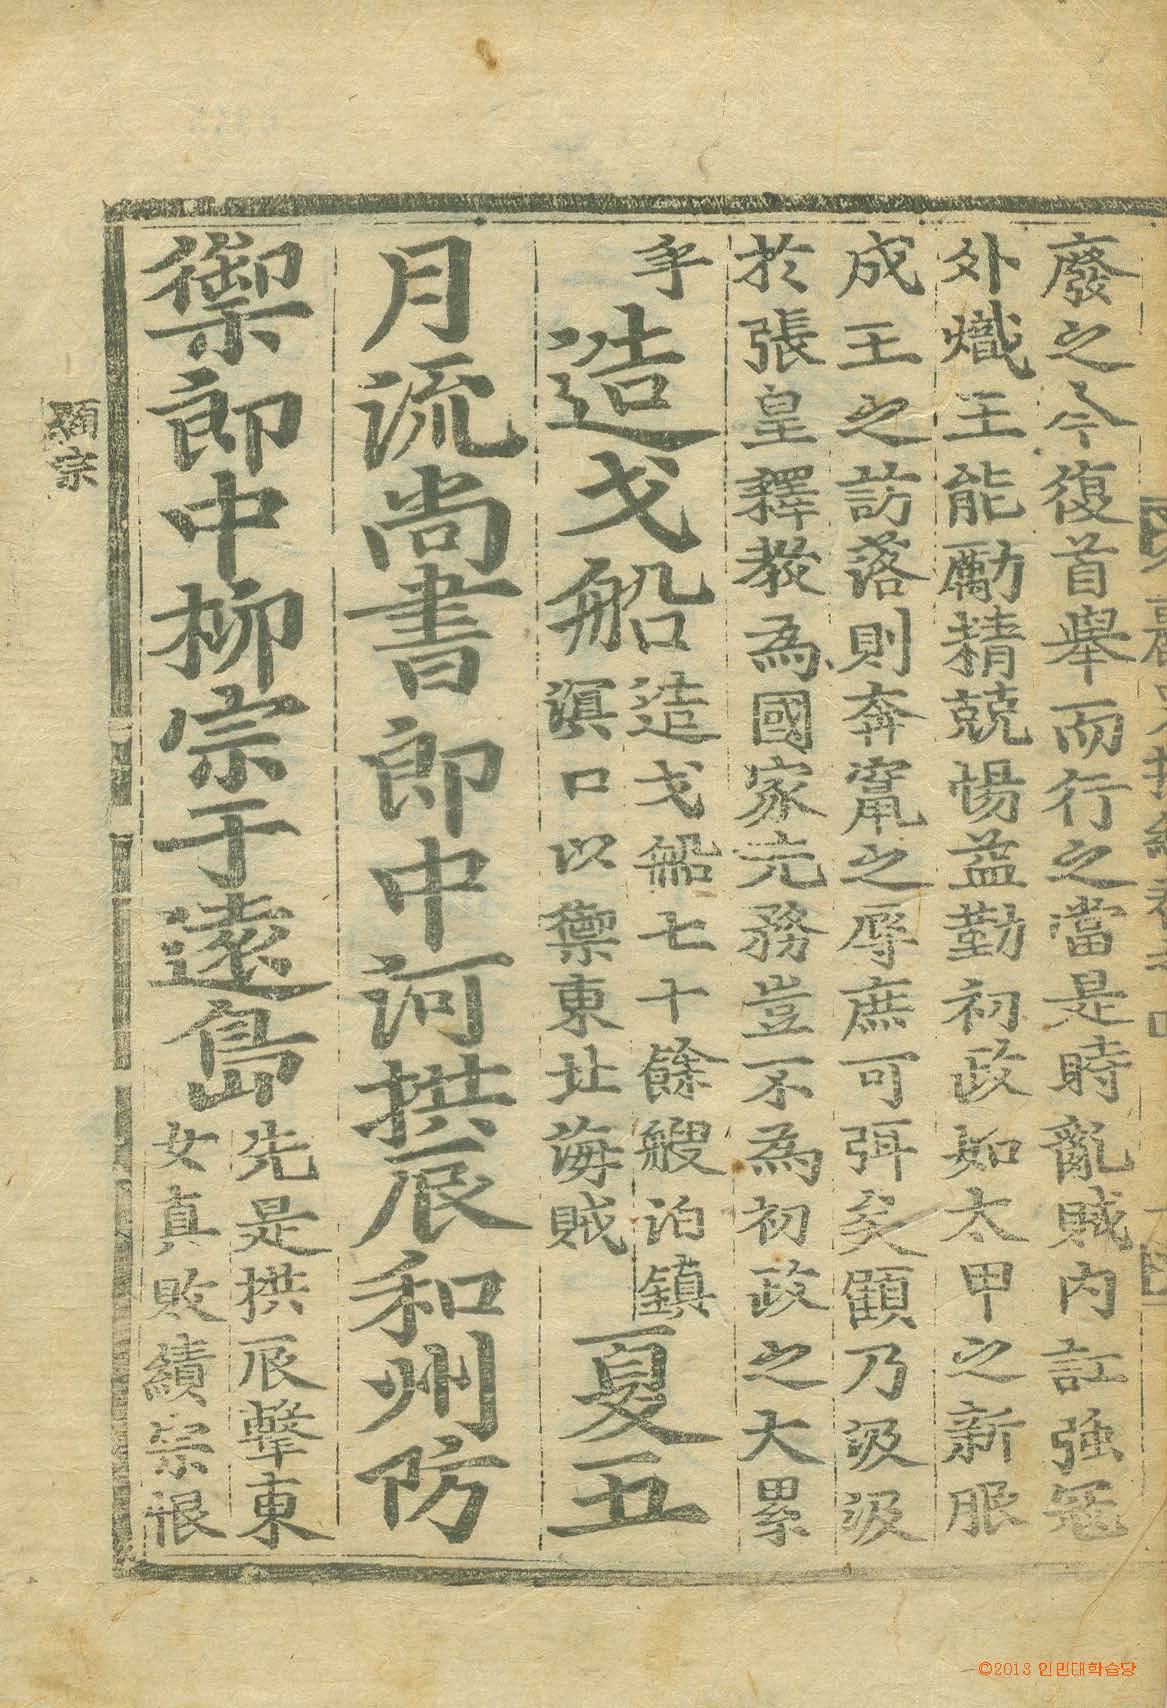 廢之今復首舉而行之當是時亂賊内訌強冦
外熾王能勵精兢惕益勤初政如太甲之新服
成王之訪落則奔竄之辱庶可弭矣顧乃汲汲
於張皇釋教為國家元務豈不為初政之大累
乎
造戈船
造戈船七十餘艘泊鎮
溟口以禦東北海賊
夏五
月流尚書郎中河拱辰和州防
禦郎中柳宗于遠島
先是拱辰擊東
女真敗績宗恨
顯宗
©2013 인민대학습당